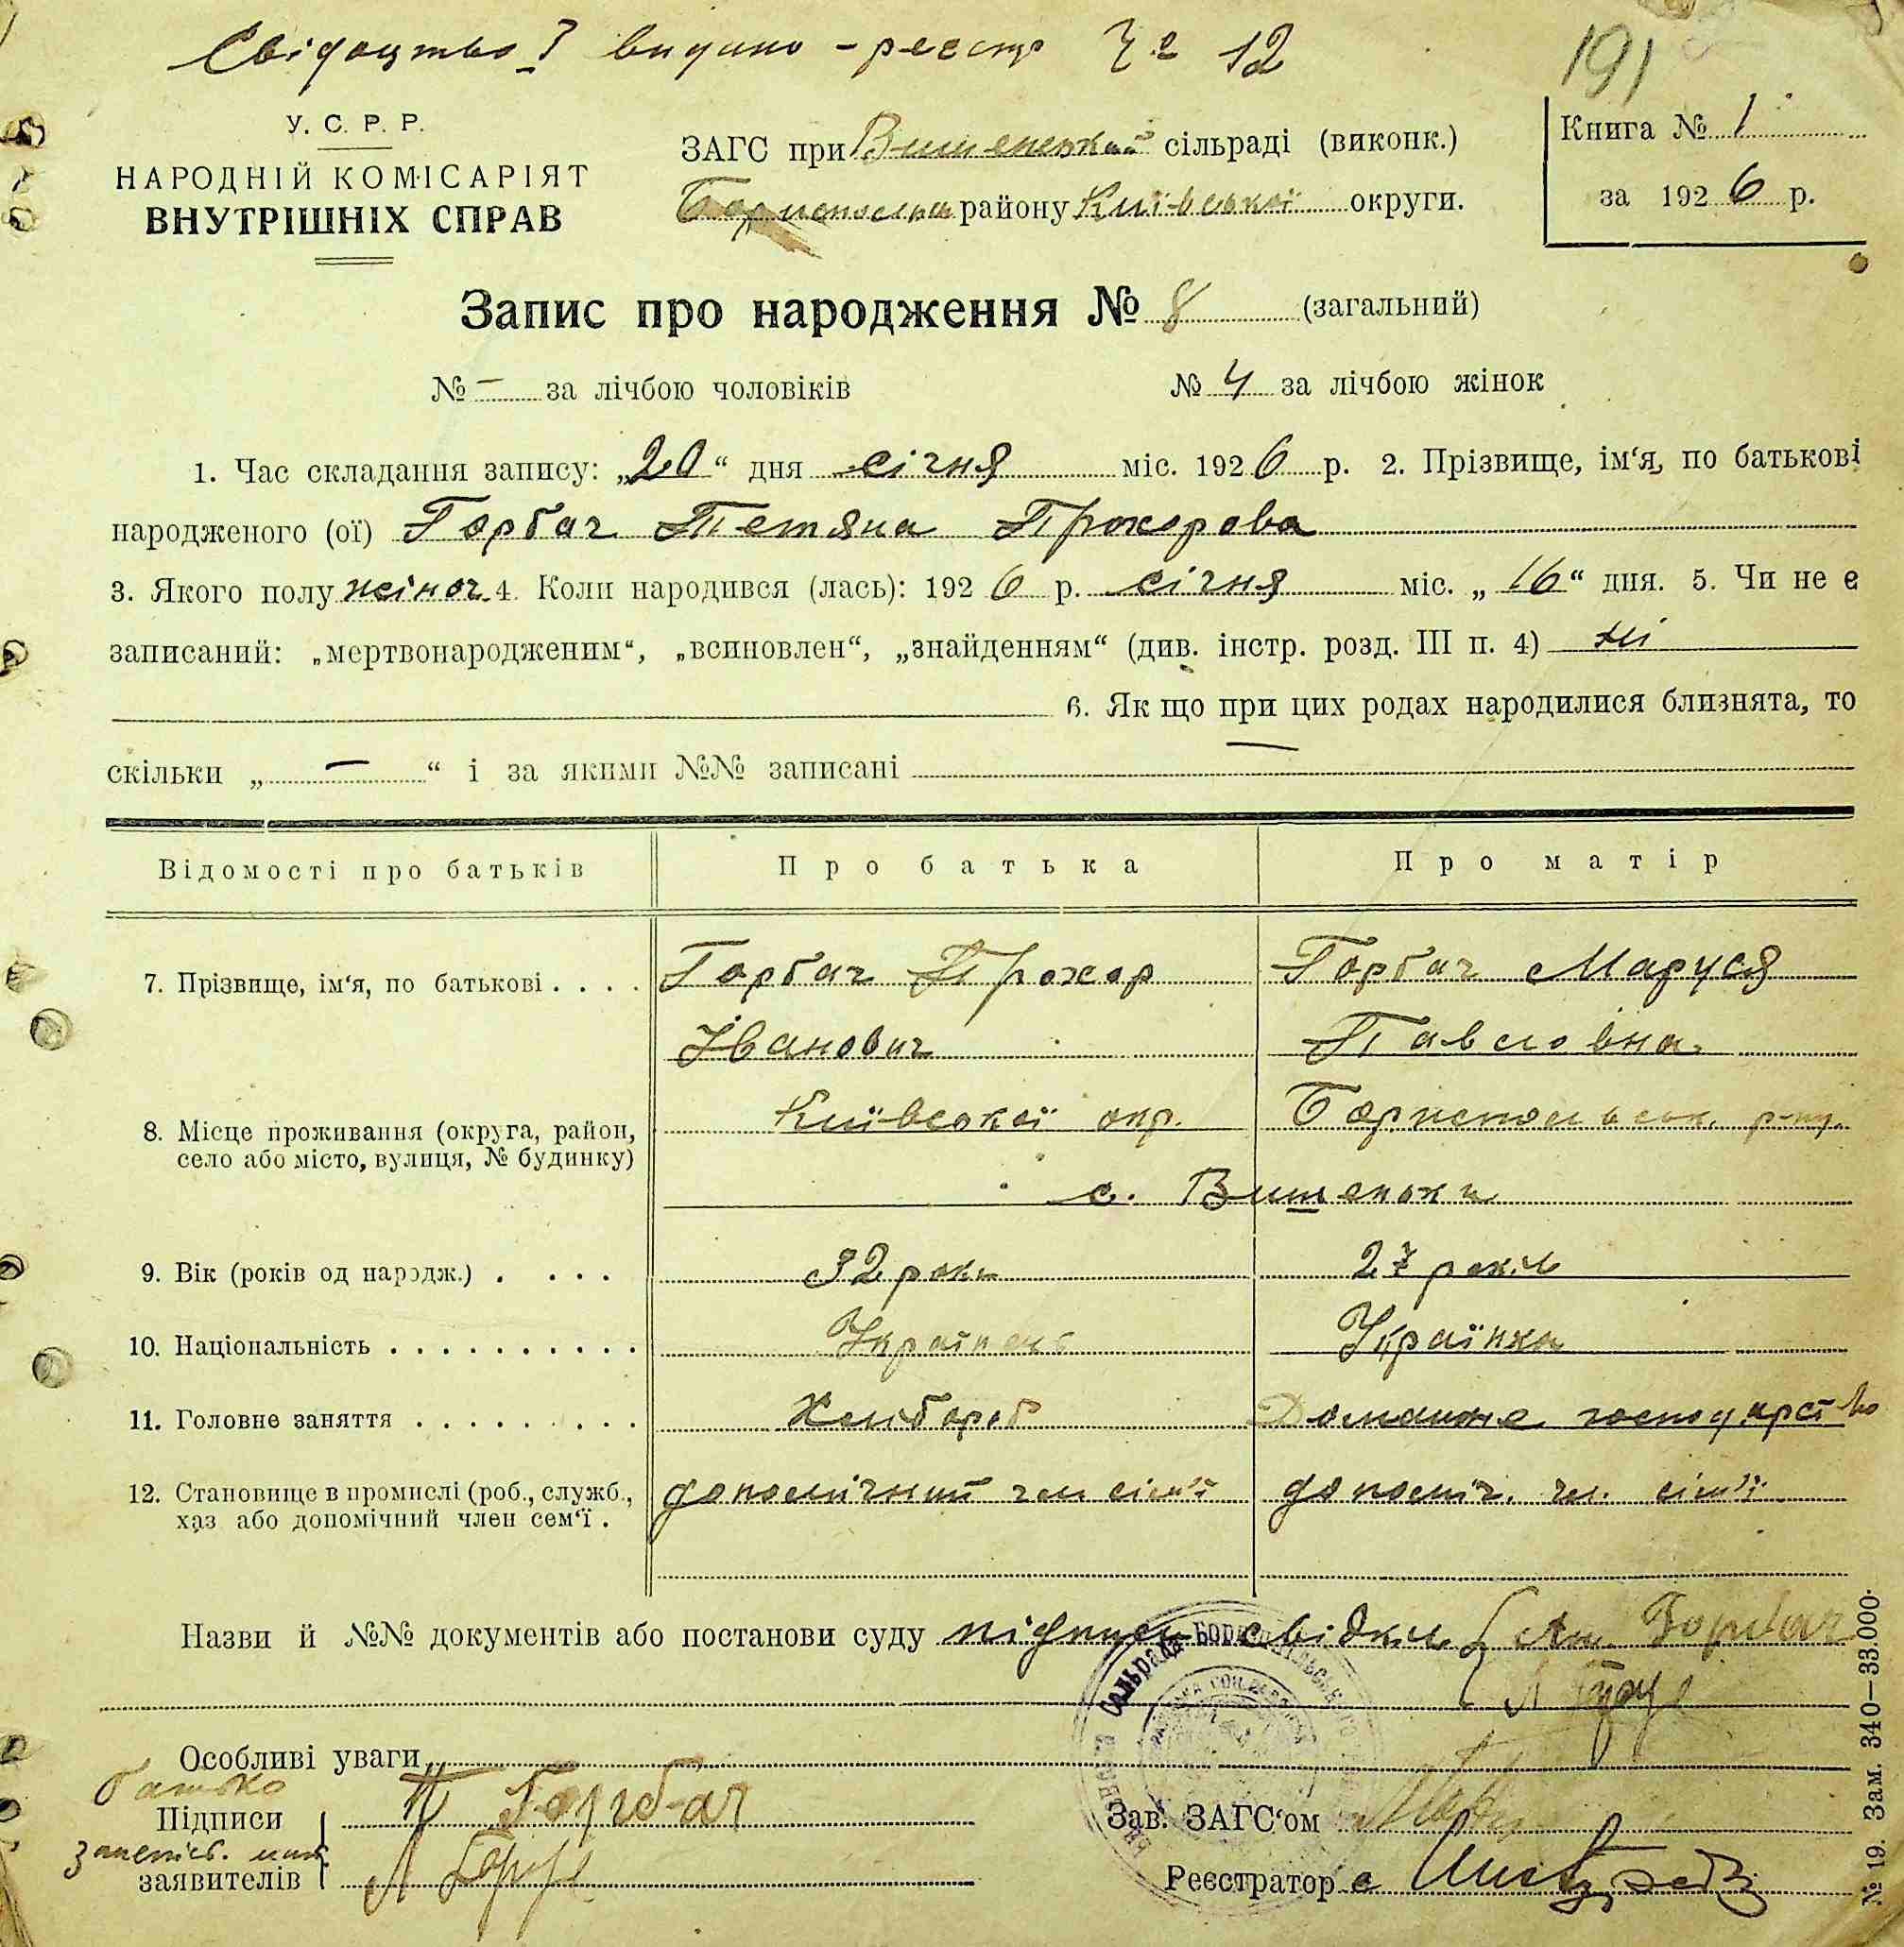 Свідоцтво видано - реєстр № 12
191
У. С. Р. Р.
НАРОДНІЙ КОМІСАРІЯТ
ВНУТРІШНІХ СПРАВ
ЗАГС при Вишеньській сільраді (виконк.)
Бориспольськ району Київської округи.
Книга № 1
за 1926 р.
Запис про народження № 8 (загальний)
№ – за лічбою чоловіків № 4 за лічбою жінок
1. Час складання запису: „20“ дня січня міс. 1926 р. 2. Прізвище, ім‘я, по батькові
народженого (ої) Горбач Тетяна Прохорова
3. Якого полу жіноч. 4. Коли народився (лась): 1926 р. січня міс. „16“ дня. 5. Чи не є
записаний: „мертвонародженим“, „всиновлен“, „знайденням“ (див. інстр. розд. III п. 4) ні
6. Як що при цих родах народилися близнята, то
скільки „ – “ і за якими №№ записані
Відомості про батьків Про батька Про матір
7. Прізвище, ім‘я, по батькові . . . . Горбач Прохор Горбач Маруся
Іванович Павловна
8. Місце проживання (округа, район, село або місто, вулиця, № будинку) Київської окр. Бориспольськ. р-ну.
с. Вишеньки
9. Вік (років од народж.) . . . . 32 роки 27 років
10. Національність . . . . . . . . . . . Українець Українка
11. Головне заняття . . . . . . . . . Хлібороб Домашнє господарство
12. Становище в промислі (роб., служб., хаз або допомічний член сем‘ї . допомічний чл сім'ї допоміч. чл. сім'ї
Назви й №№ документів або постанови суду підписи свідків Горбач
Особливі уваги
батько
Підписи П Горбач
заявителів
Зав. ЗАГС‘ом
Реєстратор
№ 19. Зам. 340—33.000.